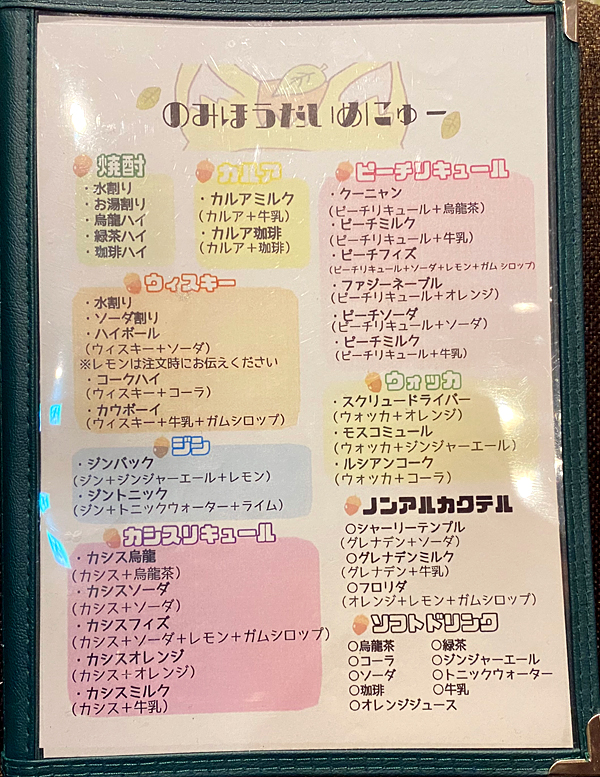 のみほうだいめにゅー
焼酎
・水割り
・お湯割り
・烏龍ハイ
・緑茶ハイ
・珈琲ハイ
カルア
・カルアミルク
(カルア+牛乳)
・カルア珈琲
(カルア+珈琲)
ウィスキー
・水割り
・ソーダ割り
・ハイボール
(ウィスキー+ソーダ)
※レモンは注文時にお伝えください
・コークハイ
(ウィスキー+コーラ)
・カウボーイ
(ウィスキー+牛乳+ガムシロップ)
ジン
・ジンバック
(ジン+ジンジャーエール+レモン)
・ジントニック
(ジン+トニックウォーター+ライム)
カシスリキュール
・カシス烏龍
(カシス+烏龍茶)
・カシスソーダ
(カシス+ソーダ)
・カシスフィズ
(カシス+ソーダ+レモン+ガムシロップ)
・カシスオレンジ
(カシス+オレンジ)
・カシスミルク
(カシス+牛乳)
ピーチリキュール
・クーニャン
(ピーチリキュール+烏龍茶)
・ピーチミルク
(ピーチリキュール+牛乳)
・ピーチフィズ
(ピーチリキュール+ソーダ+レモン+ガムシロップ)
・ファジーネーブル
(ピーチリキュール+オレンジ)
・ピーチソーダ
(ピーチリキュール+ソーダ)
・ピーチミルク
(ピーチリキュール+牛乳)
ウォッカ
・スクリュードライバー
(ウォッカ+オレンジ)
・モスコミュール
(ウォッカ+ジンジャーエール)
・ルシアンコーク
(ウォッカ+コーラ)
ノンアルカクテル
○シャーリーテンプル
(グレナデン+ソーダ)
○グレナデンミルク
(グレナデン+牛乳)
○フロリダ
(オレンジ+レモン+ガムシロップ)
ソフトドリンク
○烏龍茶 ○緑茶
○コーラ ○ジンジャーエール
○ソーダ ○トニックウォーター
○珈琲 ○牛乳
○オレンジジュース